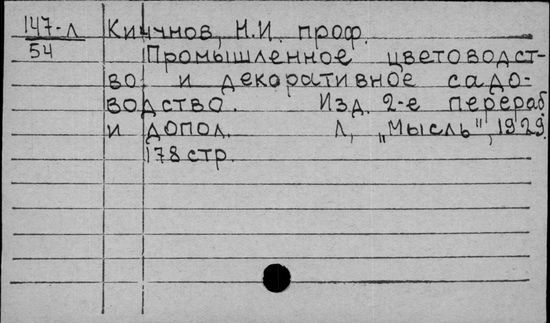 147-л Кичунов, Н.И. проф.
54
Промышленное цветоводст-
во и декоративное садо-
водство. Изд. 2-е перераб.
и допол. Л, „Мысль", 1929.
178 стр.